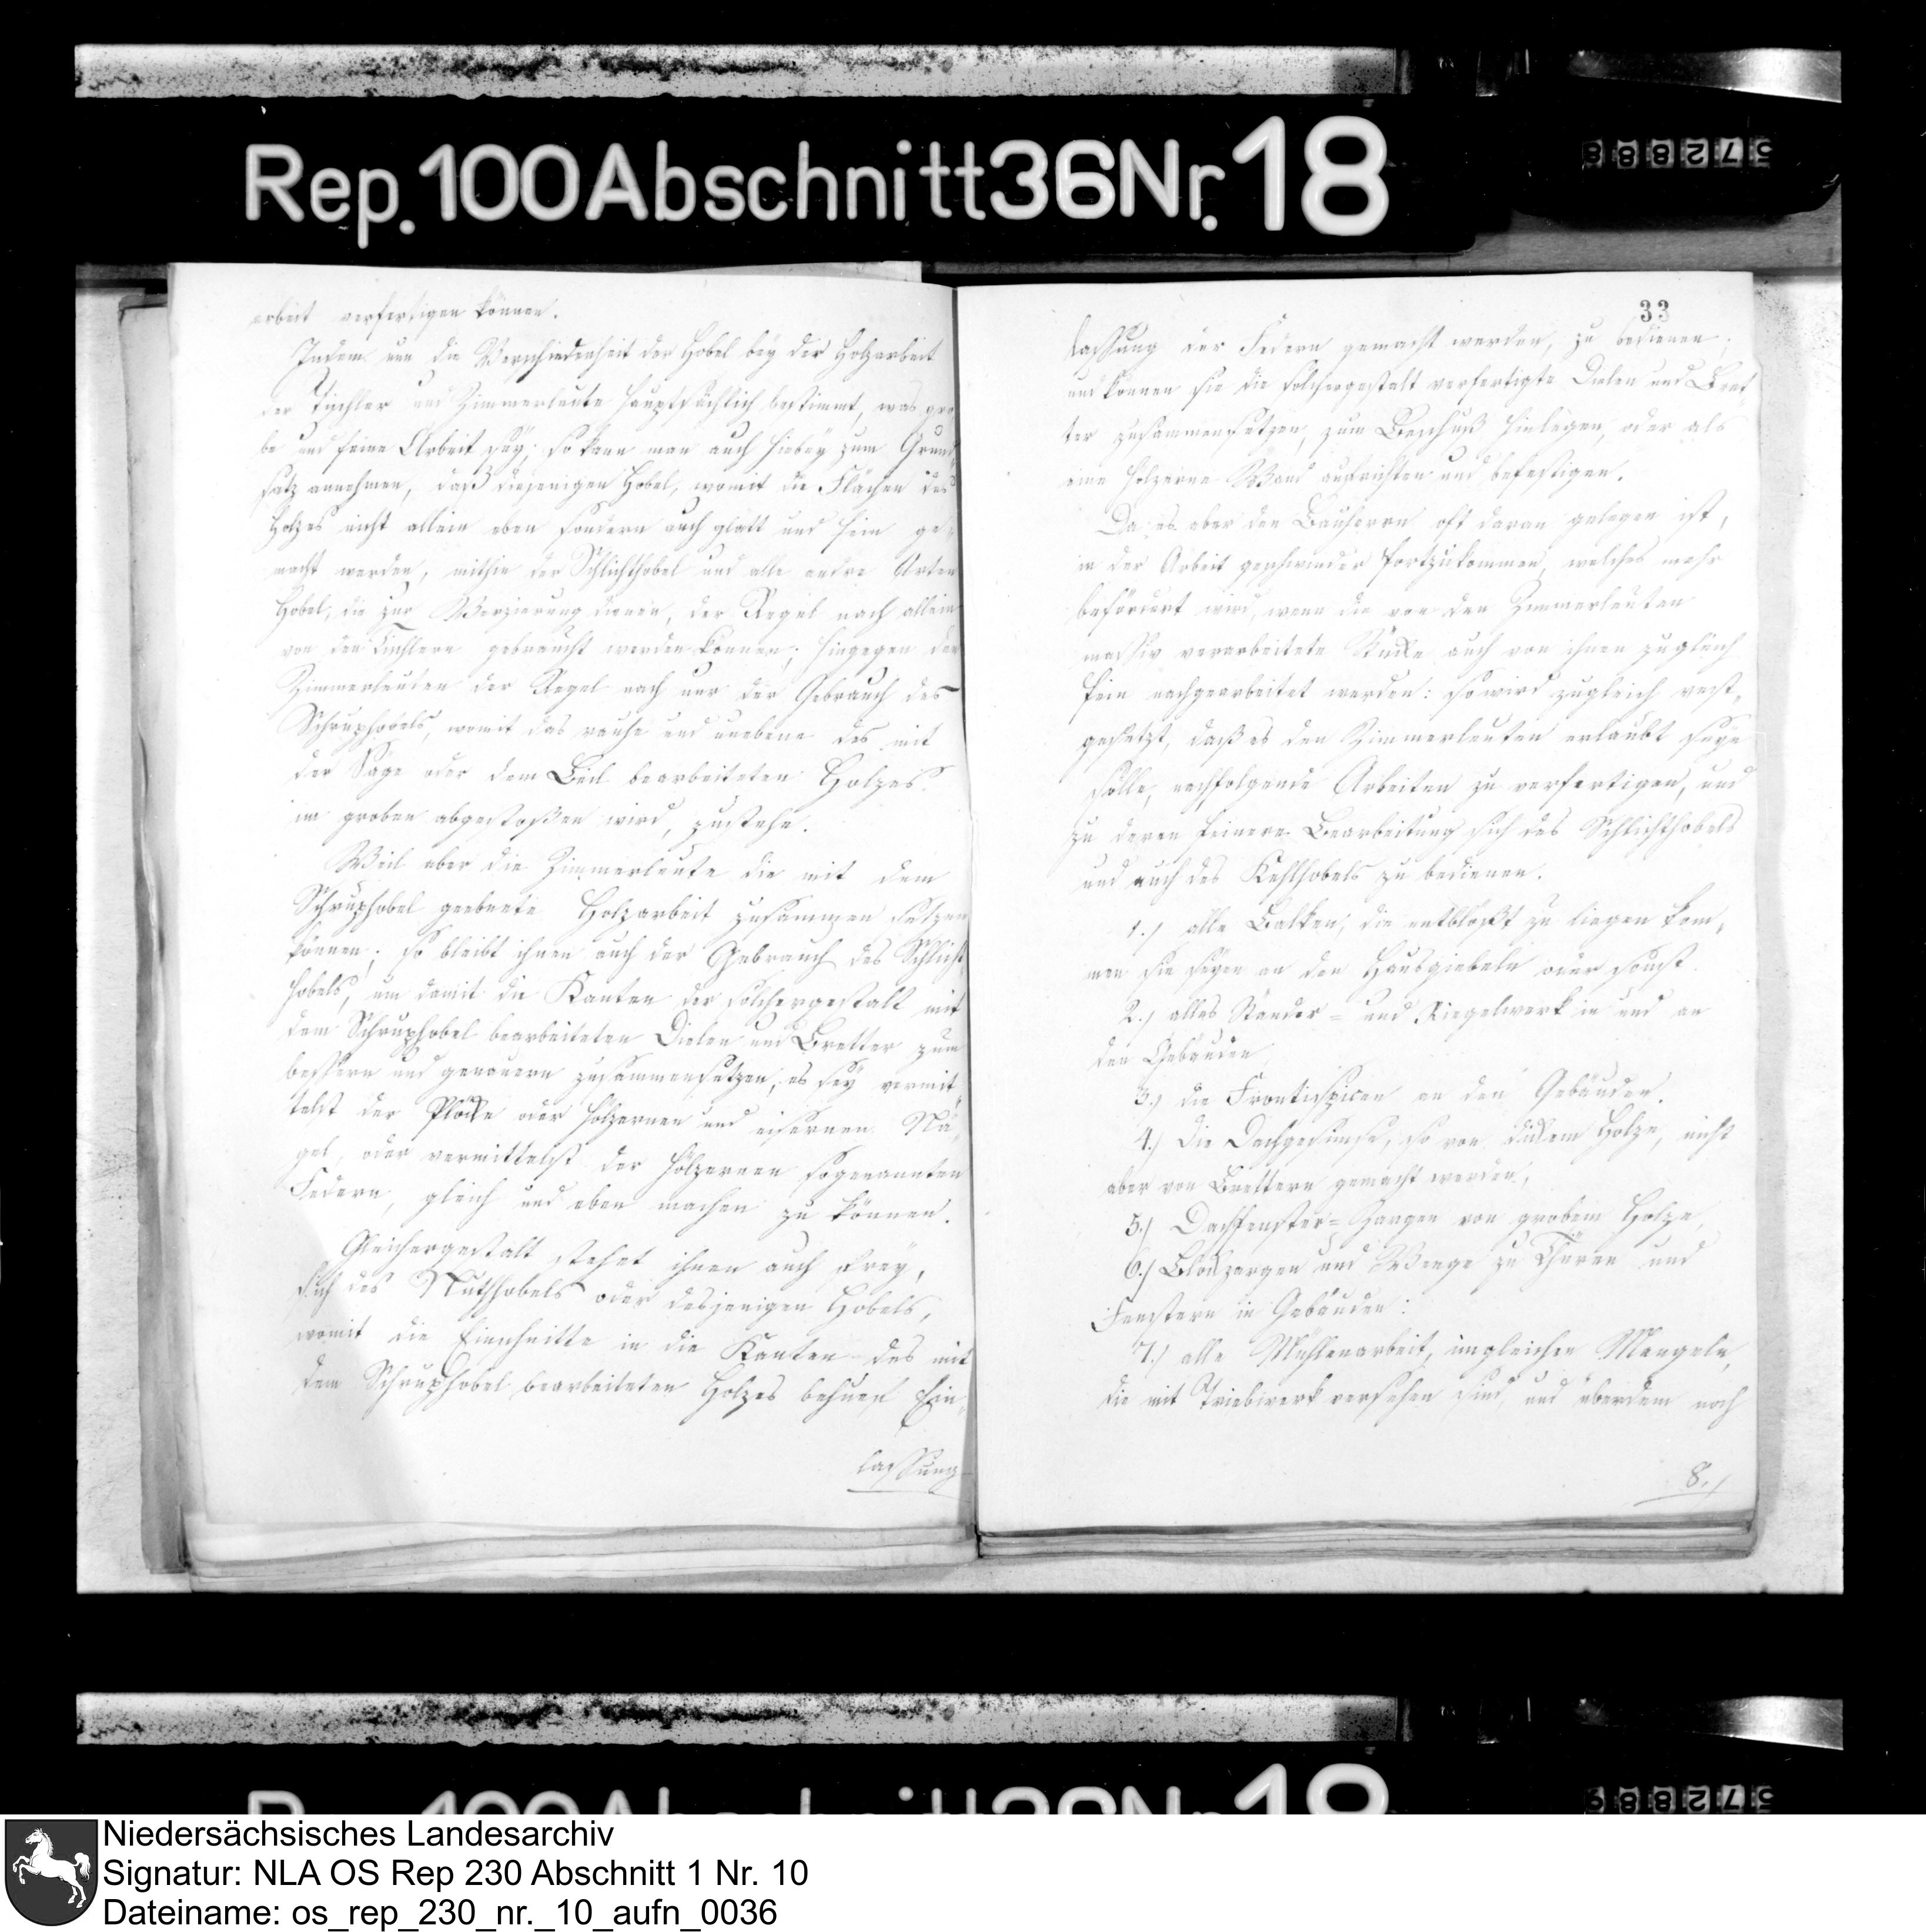 Rep. 100 Abschnitt 36 Nr. 18
572888
arbeit verfertigen können.
Indem nun die Verschiedenheit der Hobel bey der Holzarbeit
der Tischler und Zimmerleute hauptsächlich bestimmt, was gro
be und feine Arbeit sey; so kann man auch hiebey zum Grund
satz annehmen, daß diejenigen Hobel, womit die Flächen des
Holzes nicht allein eben sondern auch glatt und fein ge-
macht werden, mithin der Schlichthobel und alle andre Arten
Hobel, die zur Verzierung dienen, der Regel nach allein
von den Tischlern gebraucht werden können; hingegen den
Zimmerleuten der Regel nach nur der Gebrauch des
Schruphobels, womit das rauhe und unebene des mit
der Säge oder dem Beil bearbeiteten Holzes
im groben abgestoßen wird, zustehe.
Weil aber die Zimmerleute die mit dem
Schruphobel geebnete Holzarbeit zusammen setzen
können; so bleibt ihnen auch der Gebrauch des Schlicht
hobels, um damit die Kanten der solchergestalt mit
dem Schruphobel bearbeiteten Dielen und Bretter zum
bessern und genauern zusammensetzen, es sey vermit
telst der Plöcke oder hölzernen und eisernen Nä-
gel, oder vermittelst der hölzernen sogenannten
Federn, gleich und eben machen zu können.
Gleichergestalt stehet ihnen auch frey,
sich des Nuthhobels oder desjenigen Hobels,
womit die Einschnitte in die Kanten des mit
dem Schruphobel bearbeiteten Holzes behuef Ein-
lassung
33
lassung der Federn gemacht werden, zu bedienen;
und können sie die solchergestalt verfertigte Dielen und Bret
ter zusammensetzen, zum Beschuß hinlegen, oder als
eine hölzerne Wand aufrichten und befestigen.
Da es aber den Bauherrn oft daran gelegen ist,
in der Arbeit geschwinder fortzukommen, welches mehr
befördert wird, wenn die von den Zimmerleuten
massiv verarbeitete Stücke auch von ihnen zugleich
fein nachgearbeitet werden: so wird zugleich vest-
gesetzt, daß es den Zimmerleuten erlaubt seyn
solle, nachfolgende Arbeiten zu verfertigen, und
zu deren feinern Bearbeitung sich des Schlichthobels
und auch des Kehlhobels zu bedienen.
1.) alle Balken, die entblößt zu liegen kom-
men sie seyen an den Hausgiebeln oder sonst.
2.) alles Ständer- und Riegelwerk in und an
den Gebäuden
3.) die Frontispicen an den Gebäuden.
4.) die Dachgesimse, so von dickem Holze, nicht
aber von Brettern gemacht werden,
5.) Dachfenster-Zargen von grobem Holze,
6.) Blockzargen und Wenge zu Thüren und
Fenstern in Gebäuden:
7.) alle Mühlenarbeit, imgleichen Mangeln,
die mit Triebwerk versehen sind, und überdem noch
8.)
572889
Niedersächsisches Landesarchiv
Signatur: NLA OS Rep 230 Abschnitt 1 Nr. 10
Dateiname: os_rep_230_nr._10_aufn_0036